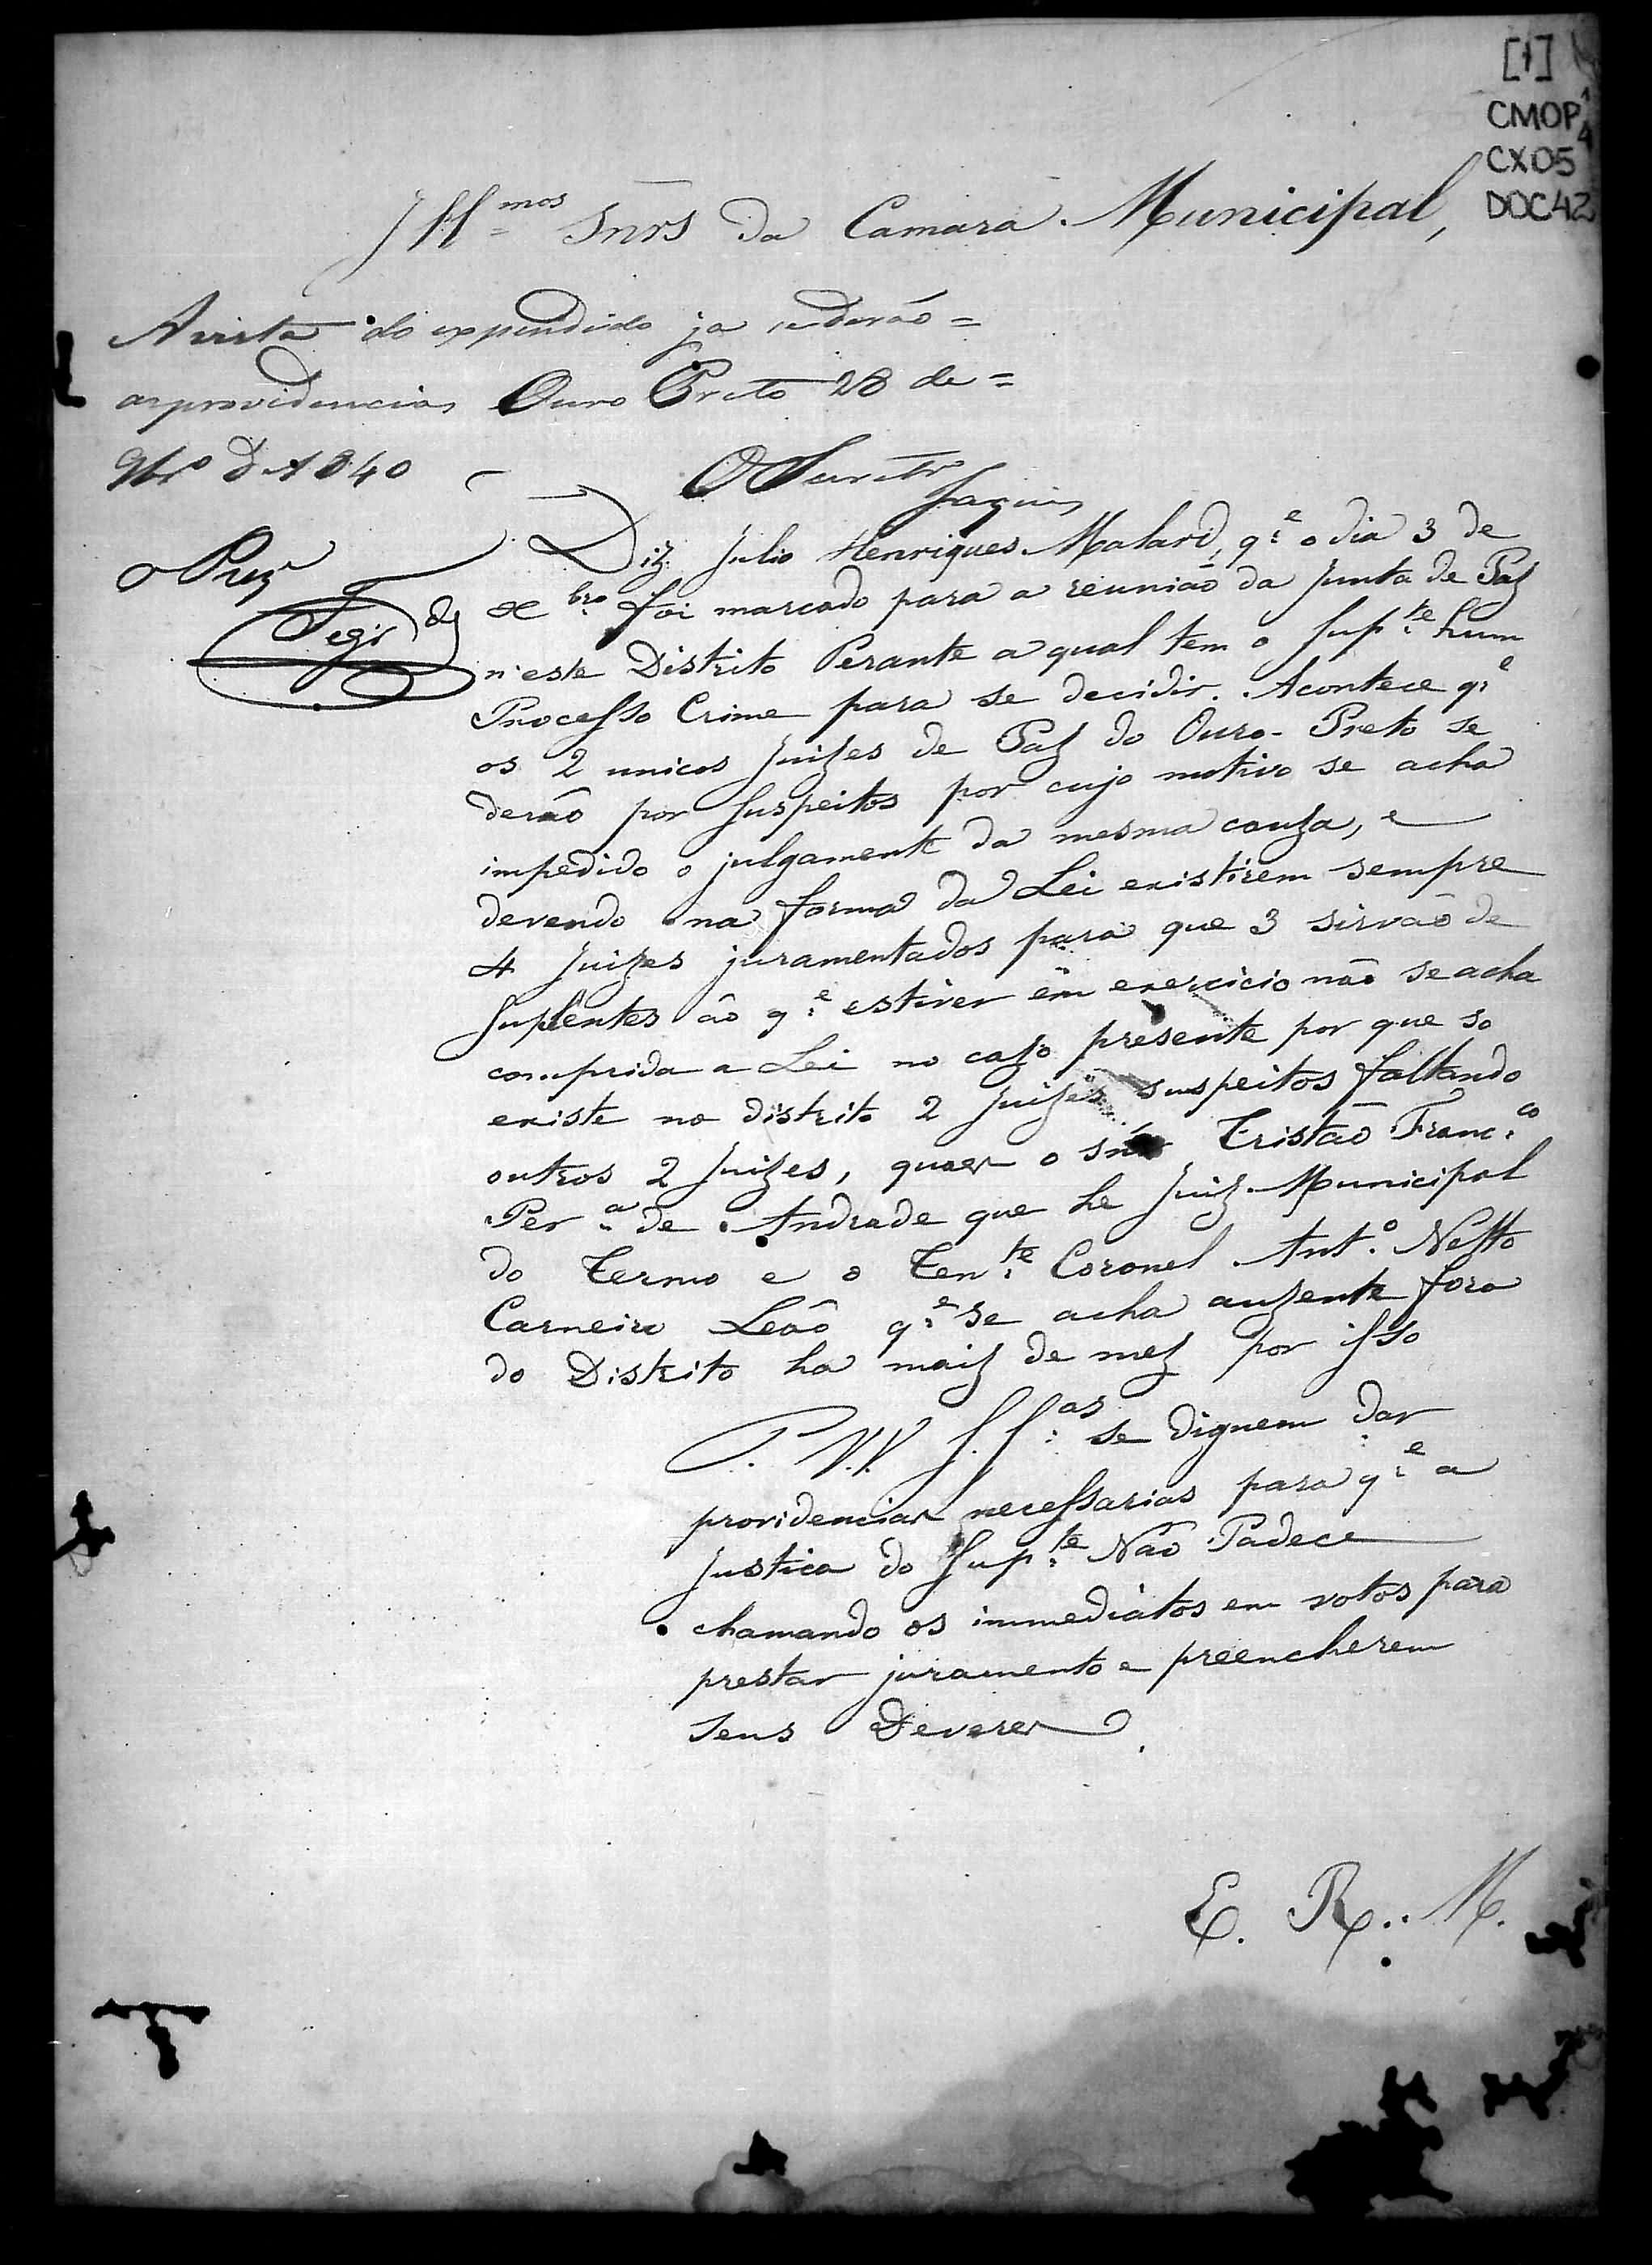 [1]
CMOP
CX05
DOC42
Illmos Snrs da Camara Municipal,
A vista do expendido ja se derão =
as providencias Ouro Preto 28 de =
Nbro D 1840
O Secretr
O Prez
Diz Julio Henriques Malard, q.e o dia 3 de
Xbro foi marcado para a reunião da Junta de Paz
n'este Distrito Perante a qual tem o Sup.te hum
Processo Crime para se decidir. Acontece q.e
os 2 unicos Juizes de Paz do Ouro-Preto se
derão por suspeitos por cujo motivo se acha
impedido o julgamento da mesma couza, e
devendo na forma da Lei existirem sempre
4 Juizes juramentados para que 3 sirvão de
Suplentes ão q.e estiver em exercicio não se acha
comprida a Lei no cazo presente por que so
existe no distrito 2 Juizes suspeitos faltando
outros 2 Juizes, quaes o Snr Tristão Franc.co
Per.a de Andrade que he Juiz Municipal
do Termo e o Ten.te Coronel Ant.o Netto
Carneiro Leão q.e se acha auzente fora
do Distrito ha maiz de mez por isso
P. V.V. S.S.as se dignem dar
providencias necessarias para q.e a
Justica do Sup.te Não Padece
chamando os immediatos em votos para
prestar juramento e preencherem
seus Deveres.
E. R. M.